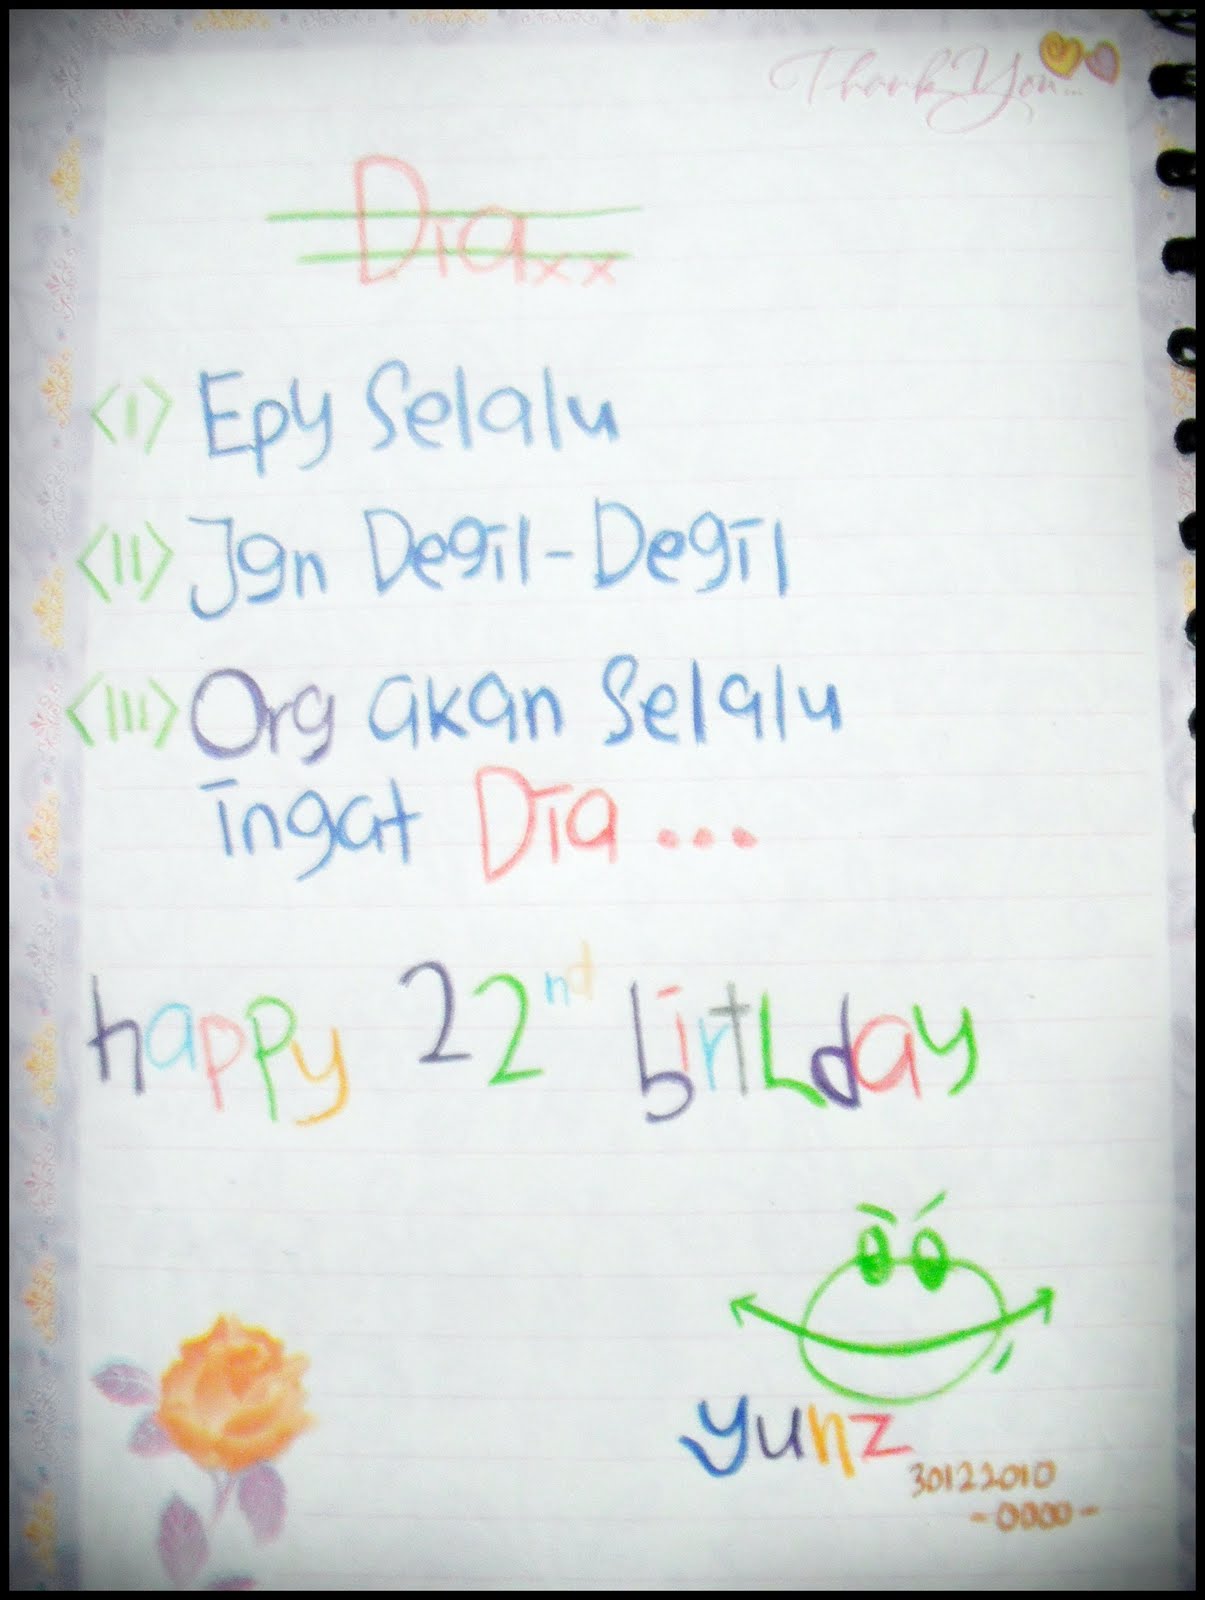 Thank You...
Diaxx
<I> Epy Selalu
<II> Jgn Degil-Degil
<III> Org akan Selalu
ingat Dia...
happy 22nd birthday
yunz
30122010
-0000-